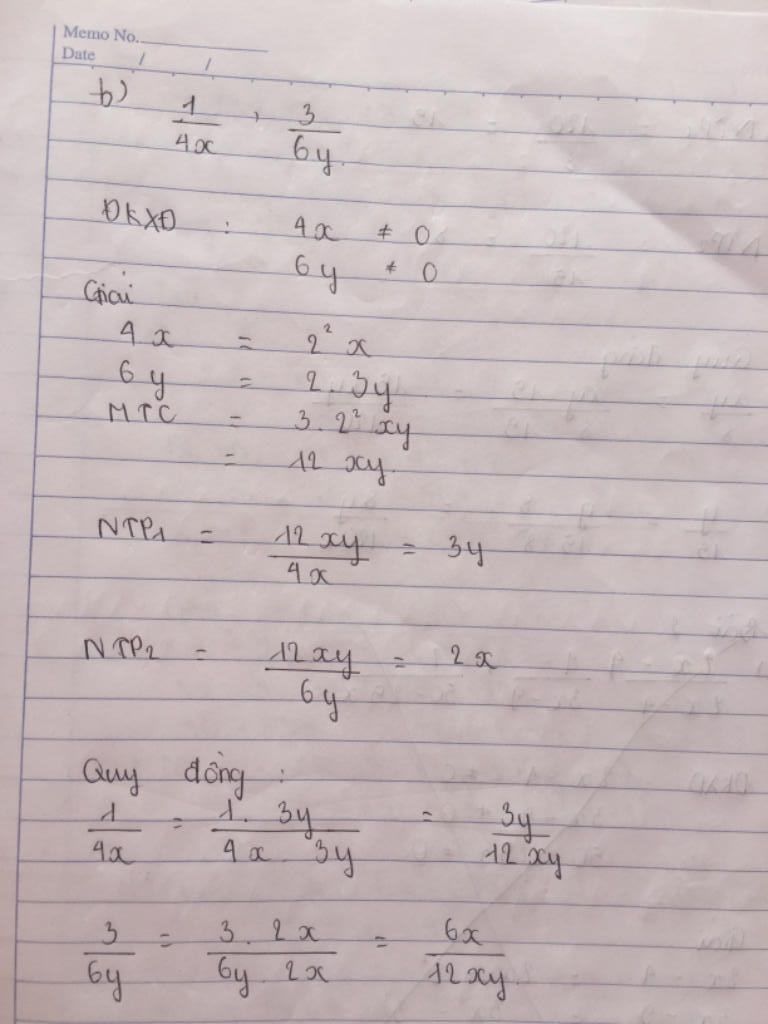 Memo No.
Date / /
b) 1/4x , 3/6y
ĐKXĐ : 4x ≠ 0
6y ≠ 0
Giải
4x = 2² x
6y = 2 . 3y
MTC = 3 . 2² xy
= 12 xy.
NTP1 = 12xy/4x = 3y
NTP2 = 12xy/6y = 2x
Quy đồng :
1/4x = 1 . 3y/4x 3y = 3y/12xy
3/6y = 3 . 2x/6y 2x = 6x/12xy